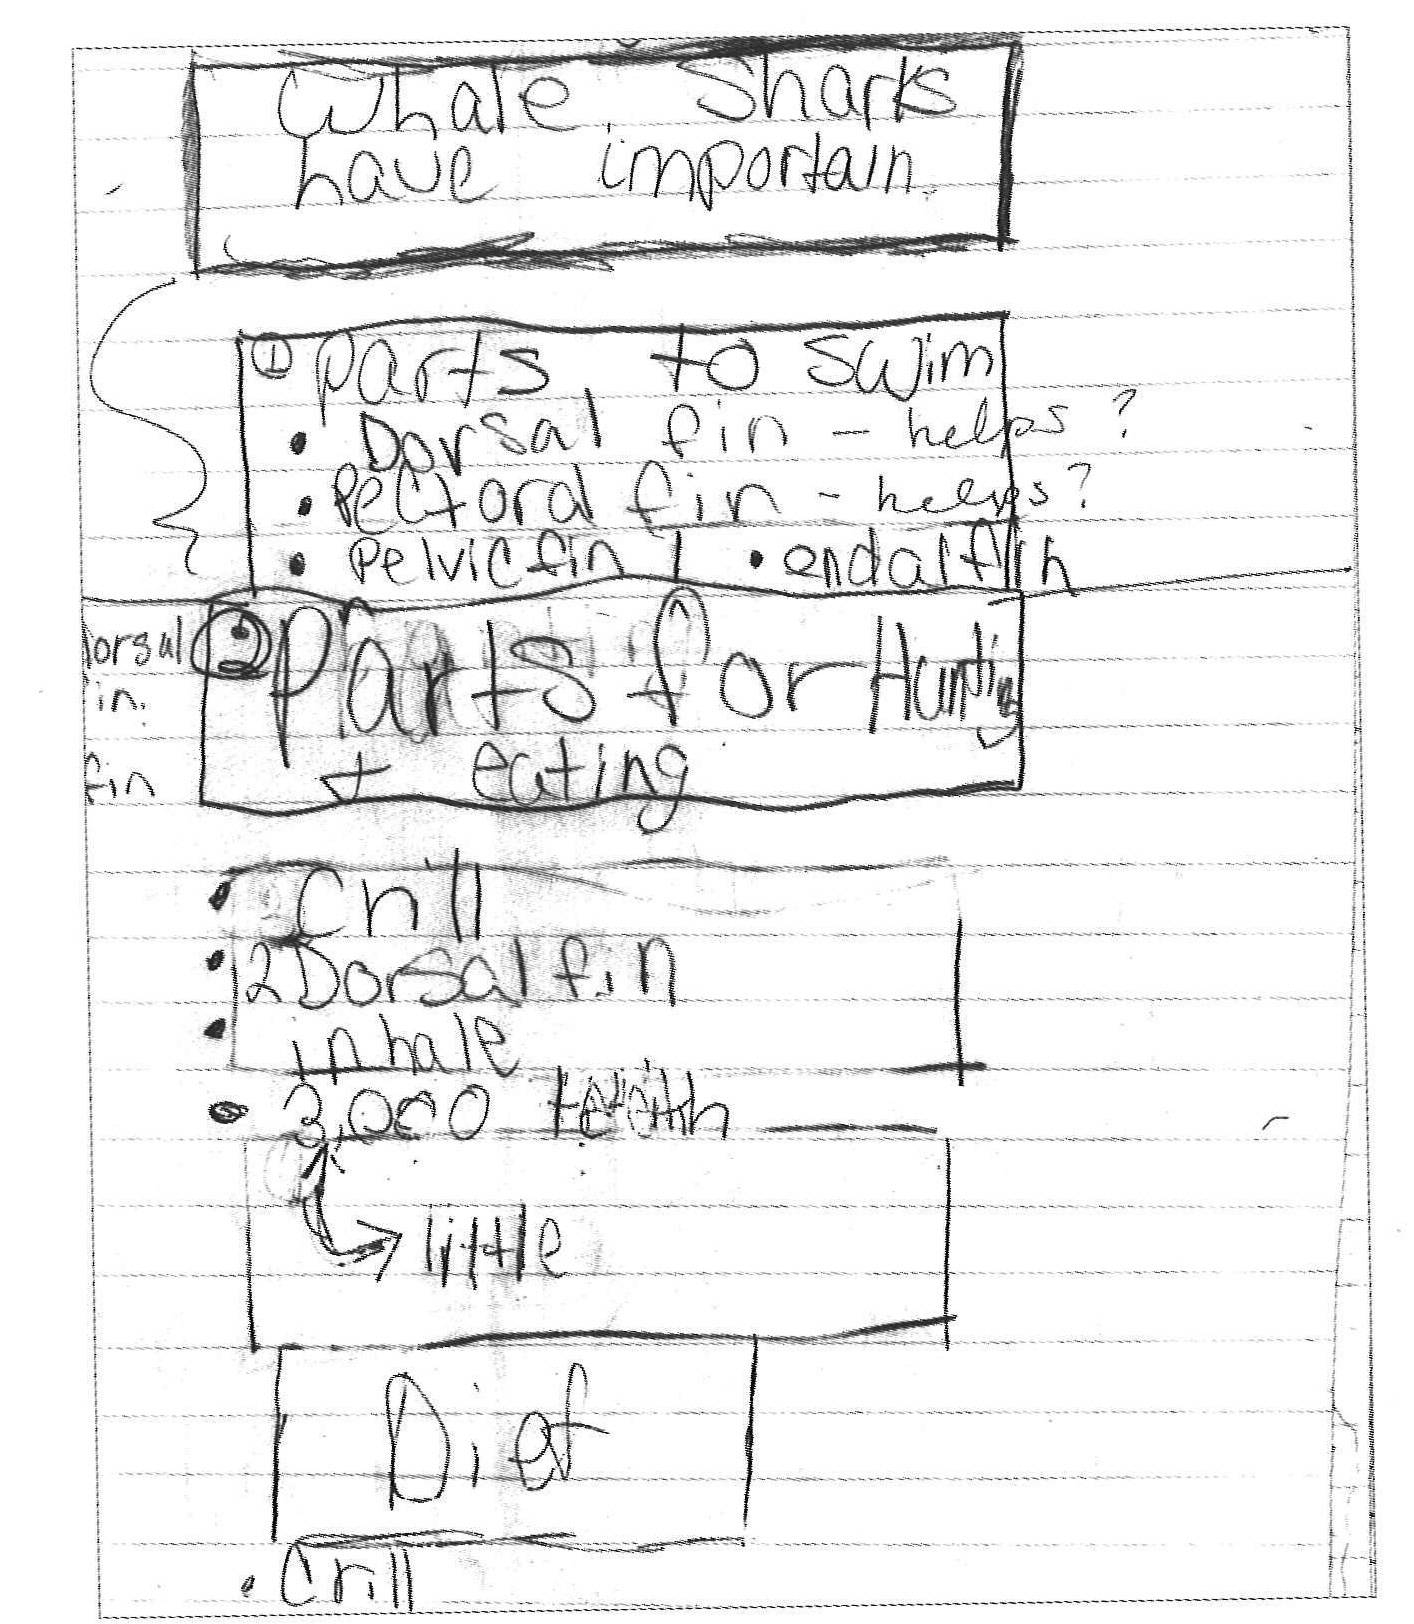 Whale Sharks
have importain
① parts to swim
• Dorsal fin - helps?
• Pectoral fin - helps?
• pelvic fin | • endal fin
② Parts for Hunting
+ eating
dorsal
in.
fin
• Crill
• 2 Dorsal fin
• inhale
• 3,000 teeth
→ little
Diet
• Crill